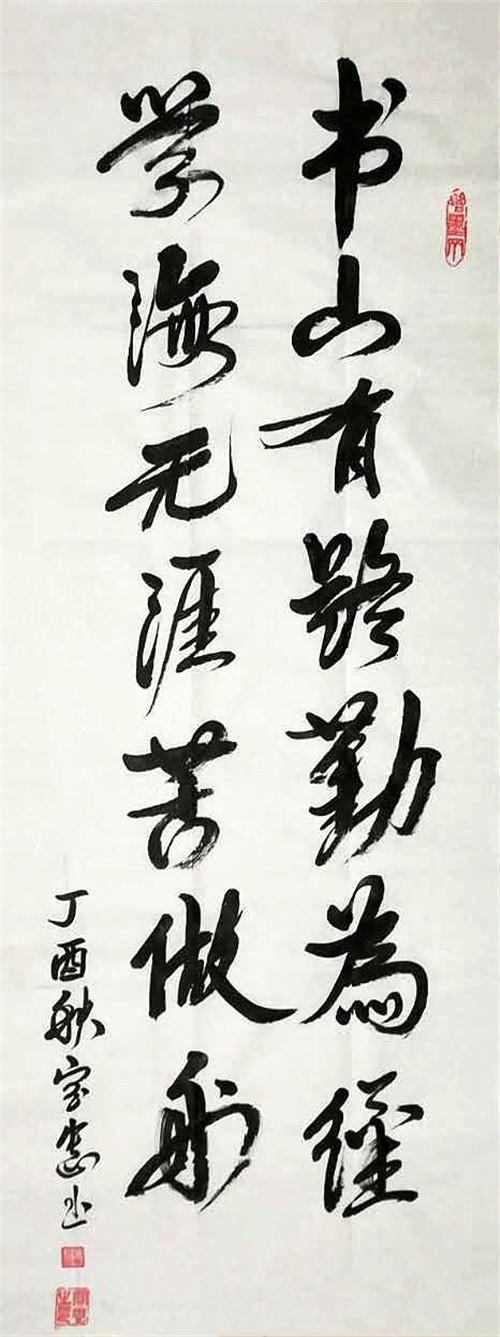 书山有路勤為径
学海无涯苦做舟
丁酉秋